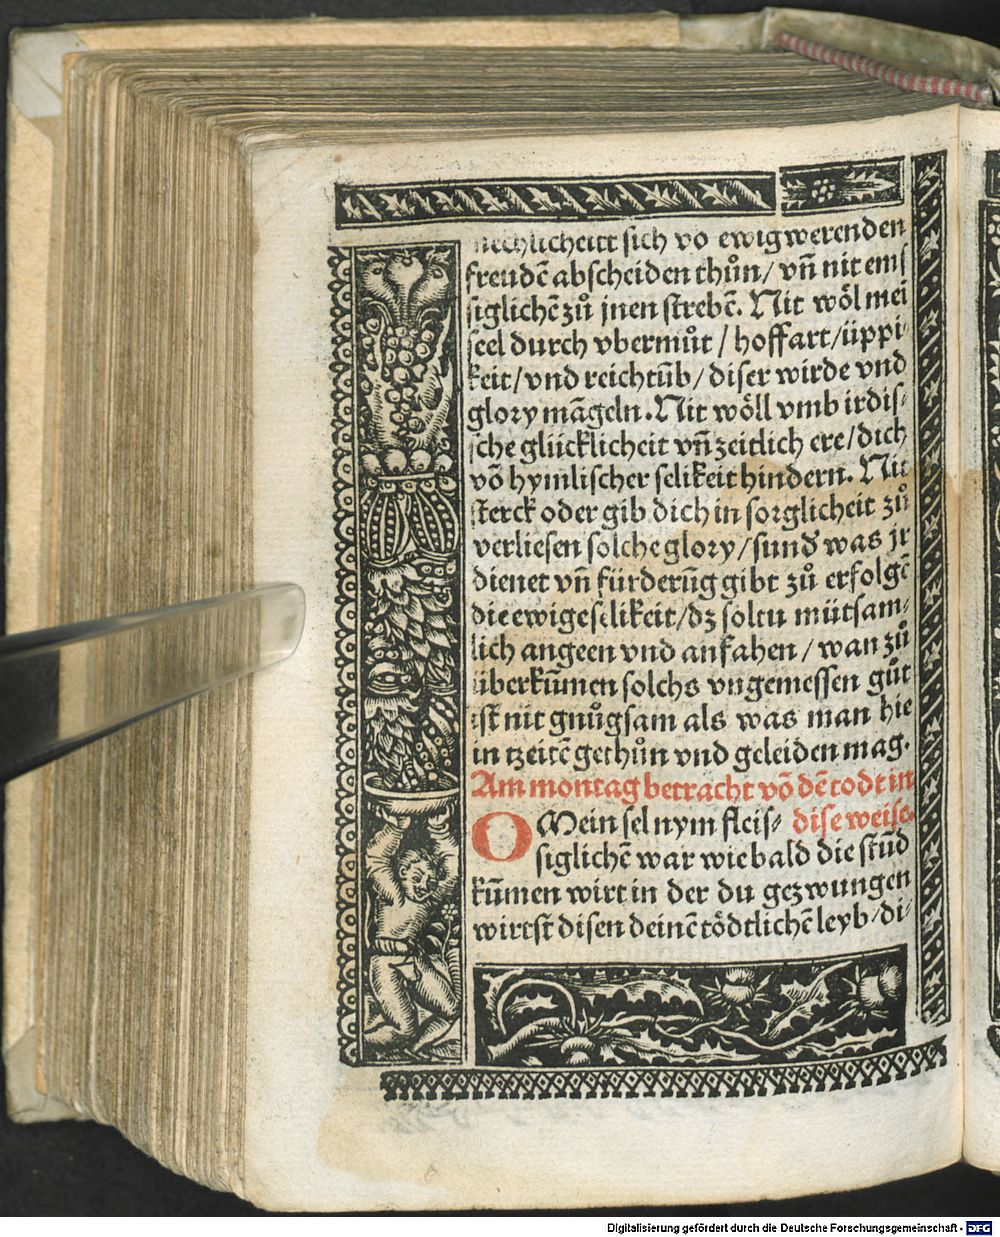 sich vo ewigwerenden
freudē abscheiden thůn/ vn̄ nit ems
siglichē zů jnen strebē. Nit wöl mei
seel durch vbermůt / hoffart/üppi⸗
keit/vnd reichtūb/ diser wirde vnd
glory māgeln. Nit wöll vmb irdis⸗
sche glücklicheit vn̄ zeitlich ere/dich
vō hymlischer selikeit hindern. Nit
sterck oder gib dich in sorglicheit zů
verliesen solche glory/sund̄ was jr
dienet vn̄ fürderūg gibt zů erfolgē
die ewige selikeit/dz soltu mütsam⸗
lich angeen vnd anfahen / wan zů
überkūmen solchs vngemessen gůt
ist nit gnůgsam als was man hie
in tzeitē gethůn vnd geleiden mag.
Am montag betracht vō dē todt in
dise weise.
O Mein sel nym fleis⸗
siglichē war wie bald die stūd
kūmen wirt in der du gezwungen
wirtst disen deinē tödtlichē leyb/di⸗
Digitalisierung gefördert durch die Deutsche Forschungsgemeinschaft - DFG